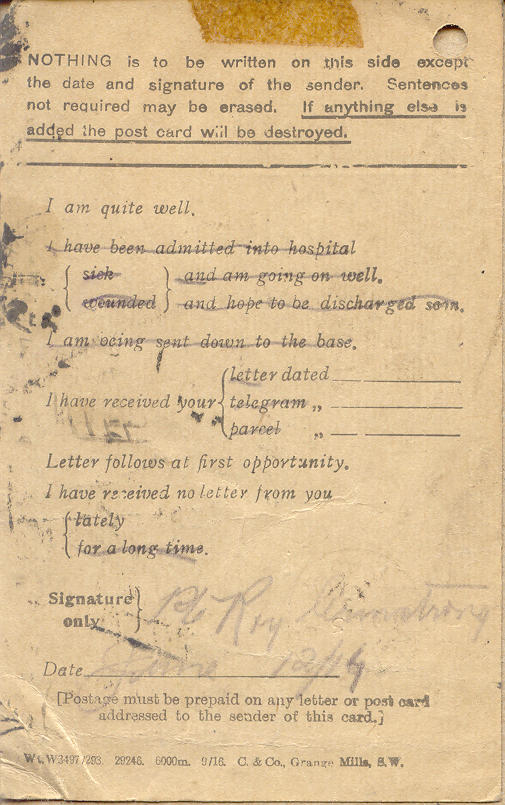 NOTHING is to be written on this side except
the date and signature of the sender. Sentences
not required may be erased. If anything else is
added the post card will be destroyed.
I am quite well.
I have been admitted into hospital
{ sick } and am going on well.
{ wounded } and hope to be discharged soon.
I am being sent down to the base.
{ letter dated
I have received your { telegram „
{ parcel „
Letter follows at first opportunity.
I have received no letter from you
{ lately
{ for a long time.
Signature }
only }
Pte Roy Armstrong
Date June 12/19
[Postage must be prepaid on any letter or post card
addressed to the sender of this card.]
Wt. W3497/293. 29246. 6000m. 9/16. C. & Co., Grange Mills, S.W.